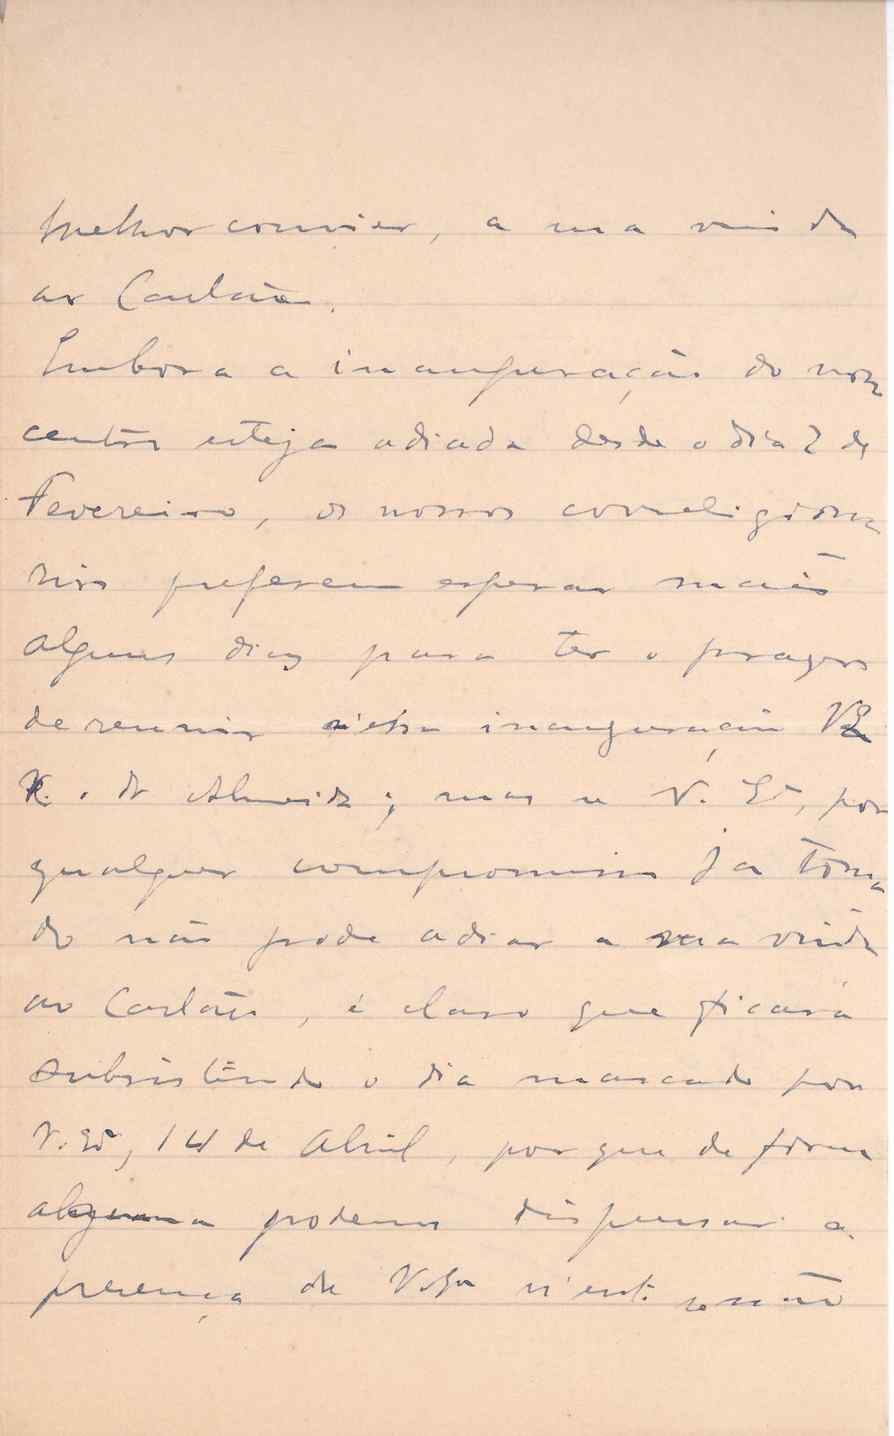 melhor convier, a sua vinda
ao Cartaxo.
Embora a inauguração do nosso
centro esteja adiada desde o dia 2 de
Fevereiro, os nossos correligiona
rios preferem esperar mais
alguns dias para ter o prazer
de reunir n'essa inauguração V. Ex.
e . d'Almeida; mas se V. Ex.ª, por
qualquer compromisso já toma
do não pode adiar a sua vinda
ao Cartaxo, é claro que ficará
subsistindo o dia marcado por
V. Ex.ª, 14 de Abril, porque de forma
alguma podemos dispensar a
presença de V. Ex.ª n'esta reunião